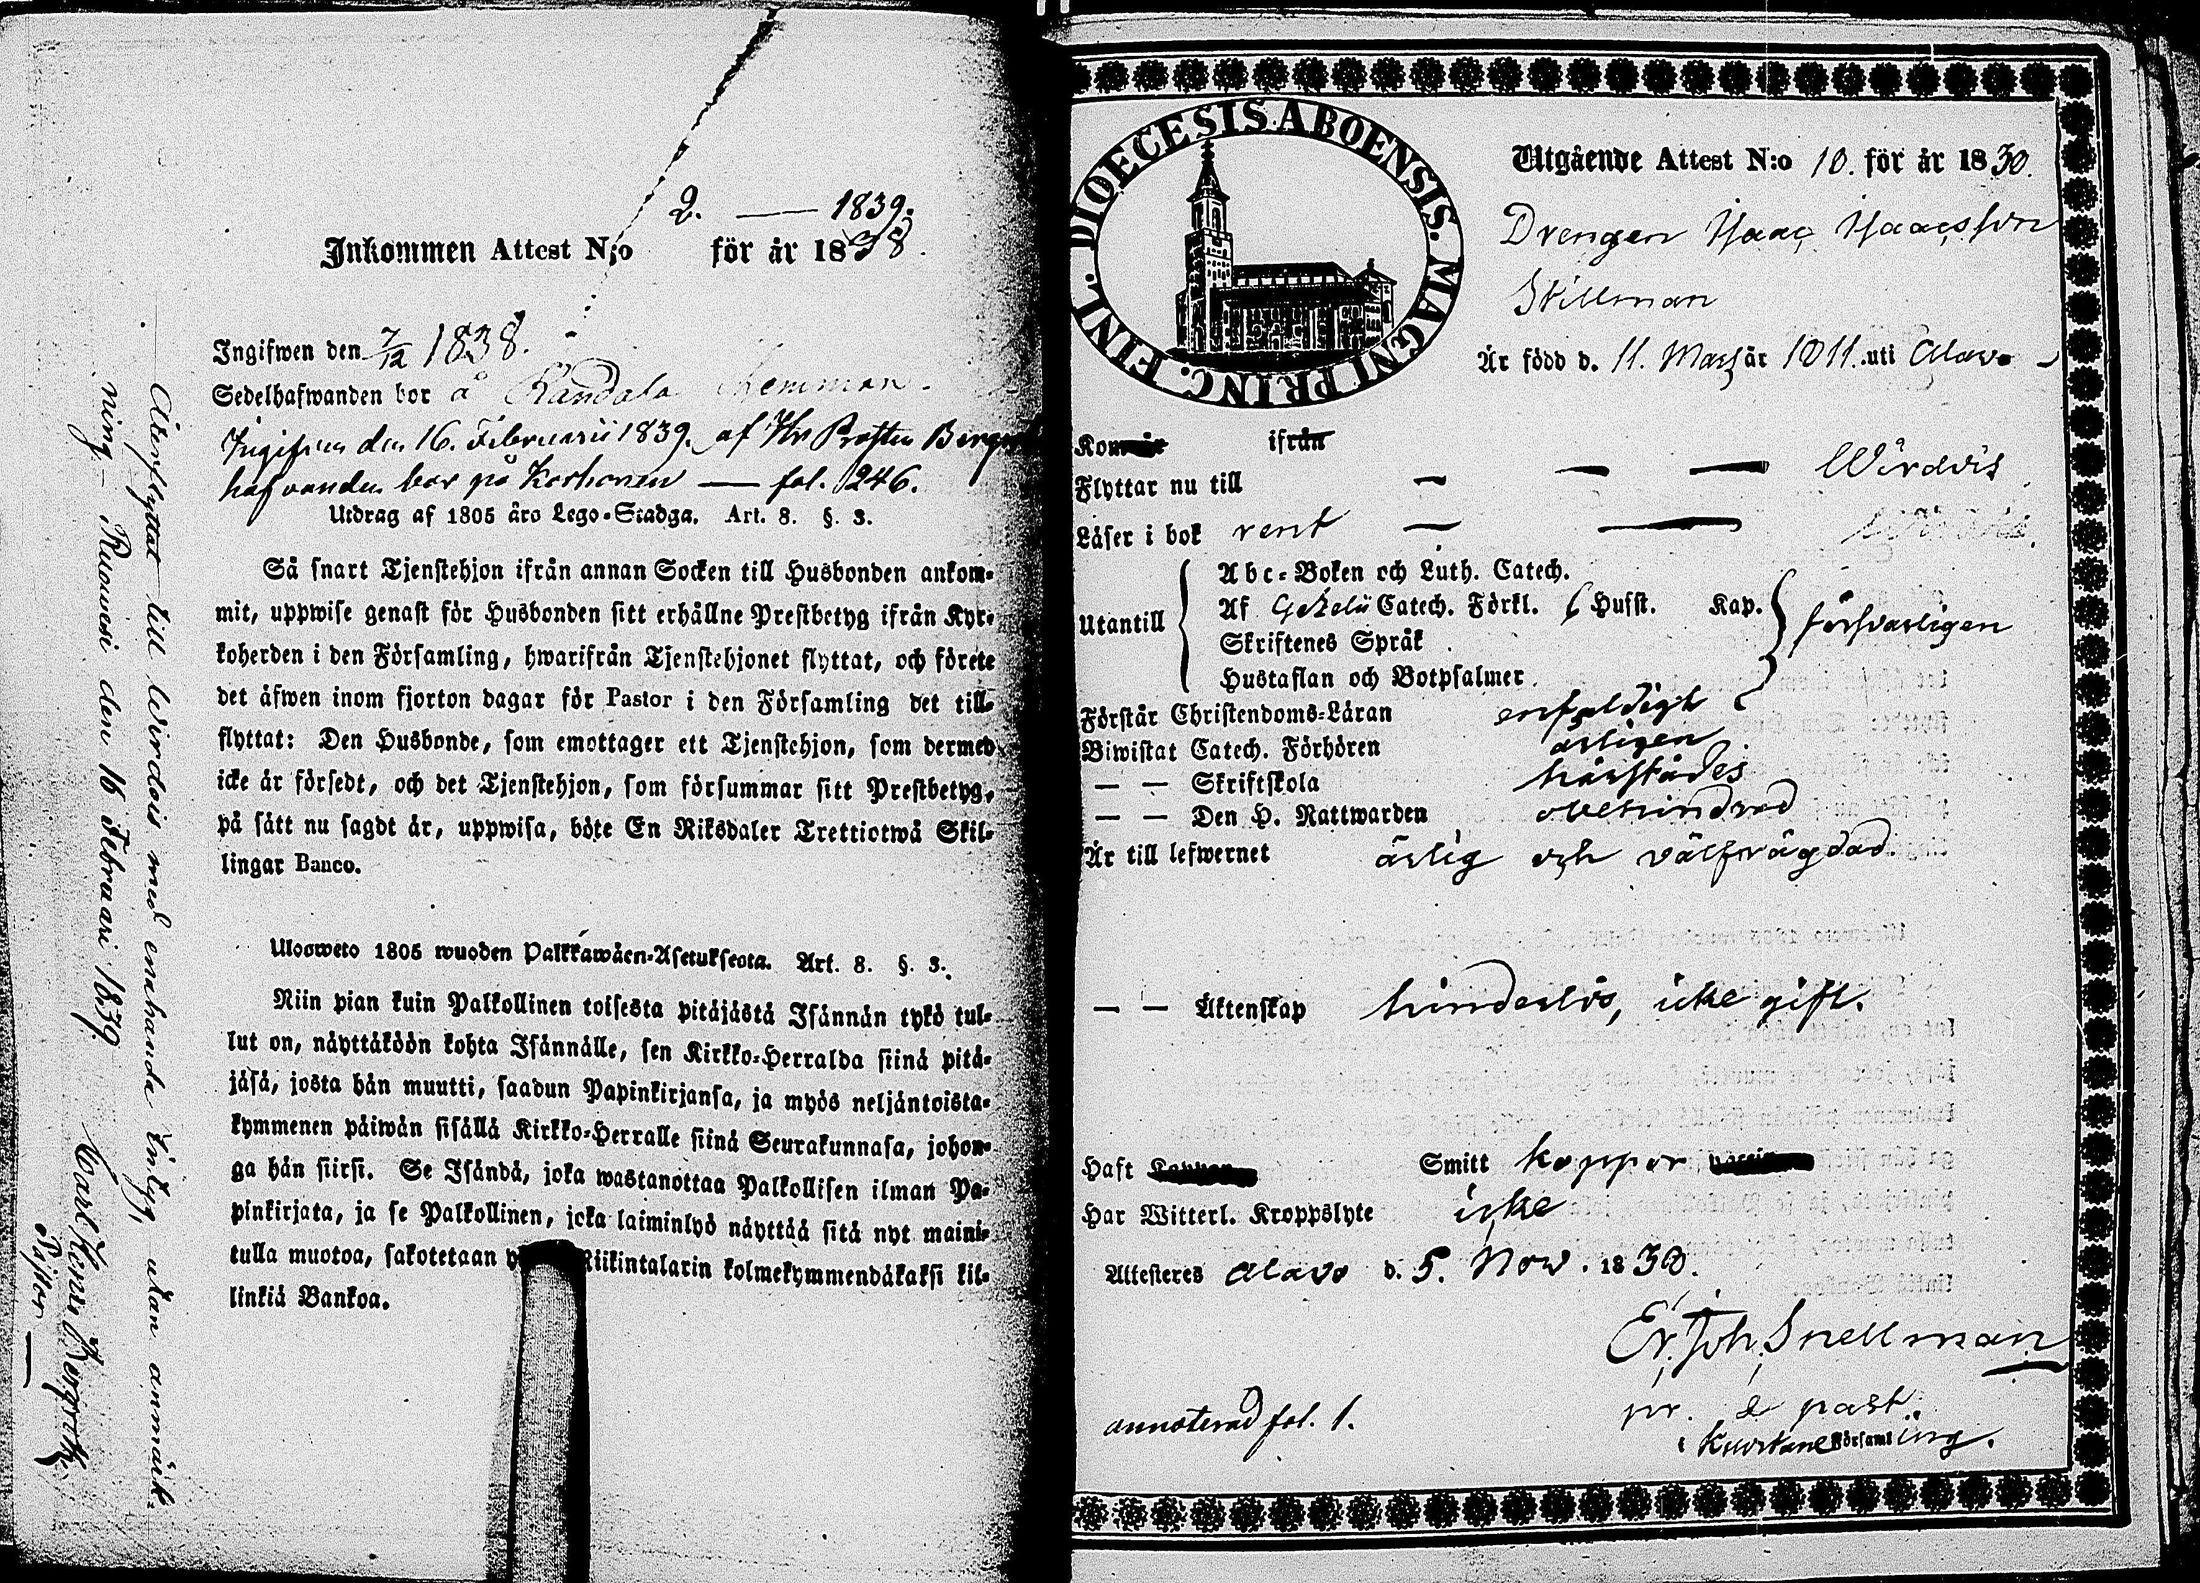 2. — 1839.
Inkommen Attest N:o för år 1838.
Ingifwen den 7/12 1838.
Sedelhafwanden bor å Randala hemman.
Ingifven den 16. Februarii 1839. af Hr Prosten
hafvanden bor på — fol. 246.
Utdrag af 1805 års Lego-Stadga. Art. 8. §. 3.
Så snart Tjenstehjon ifrån annan Socken till Husbonden ankom-
mit, uppwise genast för Husbonden sitt erhållne Prestbetyg ifrån Kyr-
koherden i den Församling, hwarifrån Tjenstehjonet flyttat, och förete
det äfwen inom fjorton dagar för Pastor i den Församling det till-
flyttat: Den Husbonde, som emottager ett Tjenstehjon, som dermed
icke är försedt, och det Tjenstehjon, som försummar sitt Prestbetyg,
på sätt nu sagdt är, uppwisa, böte En Riksdaler Trettiotwå Skil-
lingar Banco.
Ulosweto 1805 wuoden Palkkawäen-Asetuksesta. Art. 8. §. 3.
Niin pian kuin Palkollinen toisesta pitäjästä Isännän tykö tul-
lut on, näyttäköön kohta Isännälle, sen Kirkko-Herralda siinä pitä-
jäsä, josta hän muutti, saadun Papinkirjansa, ja myös neljäntoista-
kymmenen päiwän sisällä Kirkko-Herralle siinä Seurakunnasa, johon-
ga hän siirsi. Se Isändä, joka wastanottaa Palkollisen ilman Pa-
pinkirjata, ja se Palkollinen, joka laiminlyö näyttää sitä nyt maini-
tulla muotoa, sakotetaan Riikintalarin kolmekymmendäkaksi kil-
linkiä Bankoa.
Återflyttat till Wirdois med enahanda betyg, utan anmärk-
ning — Ruowesi den 16 Februari 1839.
Carl Henr. Bergroth.
Pastor —
DIOECESIS ABOENSIS. MAGNI PRINC. FINL.
Utgående Attest N:o 10. för år 1830.
Drengen Isaac Isaacsson
Stillman
Är född d. 11. Mars år 1811. uti Alavo
ifrån
Flyttar nu till — — — Wirdois
Läser i bok rent — —
Utantill
Abc-Boken och Luth. Catech.
Af Gezelii Catech. Förkl. 6 Hufst. Kap.
Skriftenes Språk
Hustaflan och Botpsalmer.
försvarligen
Förstår Christendoms-Läran enfaldigt
Biwistat Catech. Förhören årligen
— — Skriftskola härstädes
— — Den H. Nattwarden obehindrad
Är till lefwernet ärlig och välfrägdad.
— — Äktenskap hinderlös, icke gift.
Haft Smitt koppor
Har Witterl. Kroppslyte icke
Attesteres Alavo d. 5. Nov. 1830.
Er. Joh. Snellman
pr. & past.
i Kuortane Församling.
annoterad fol. 1.